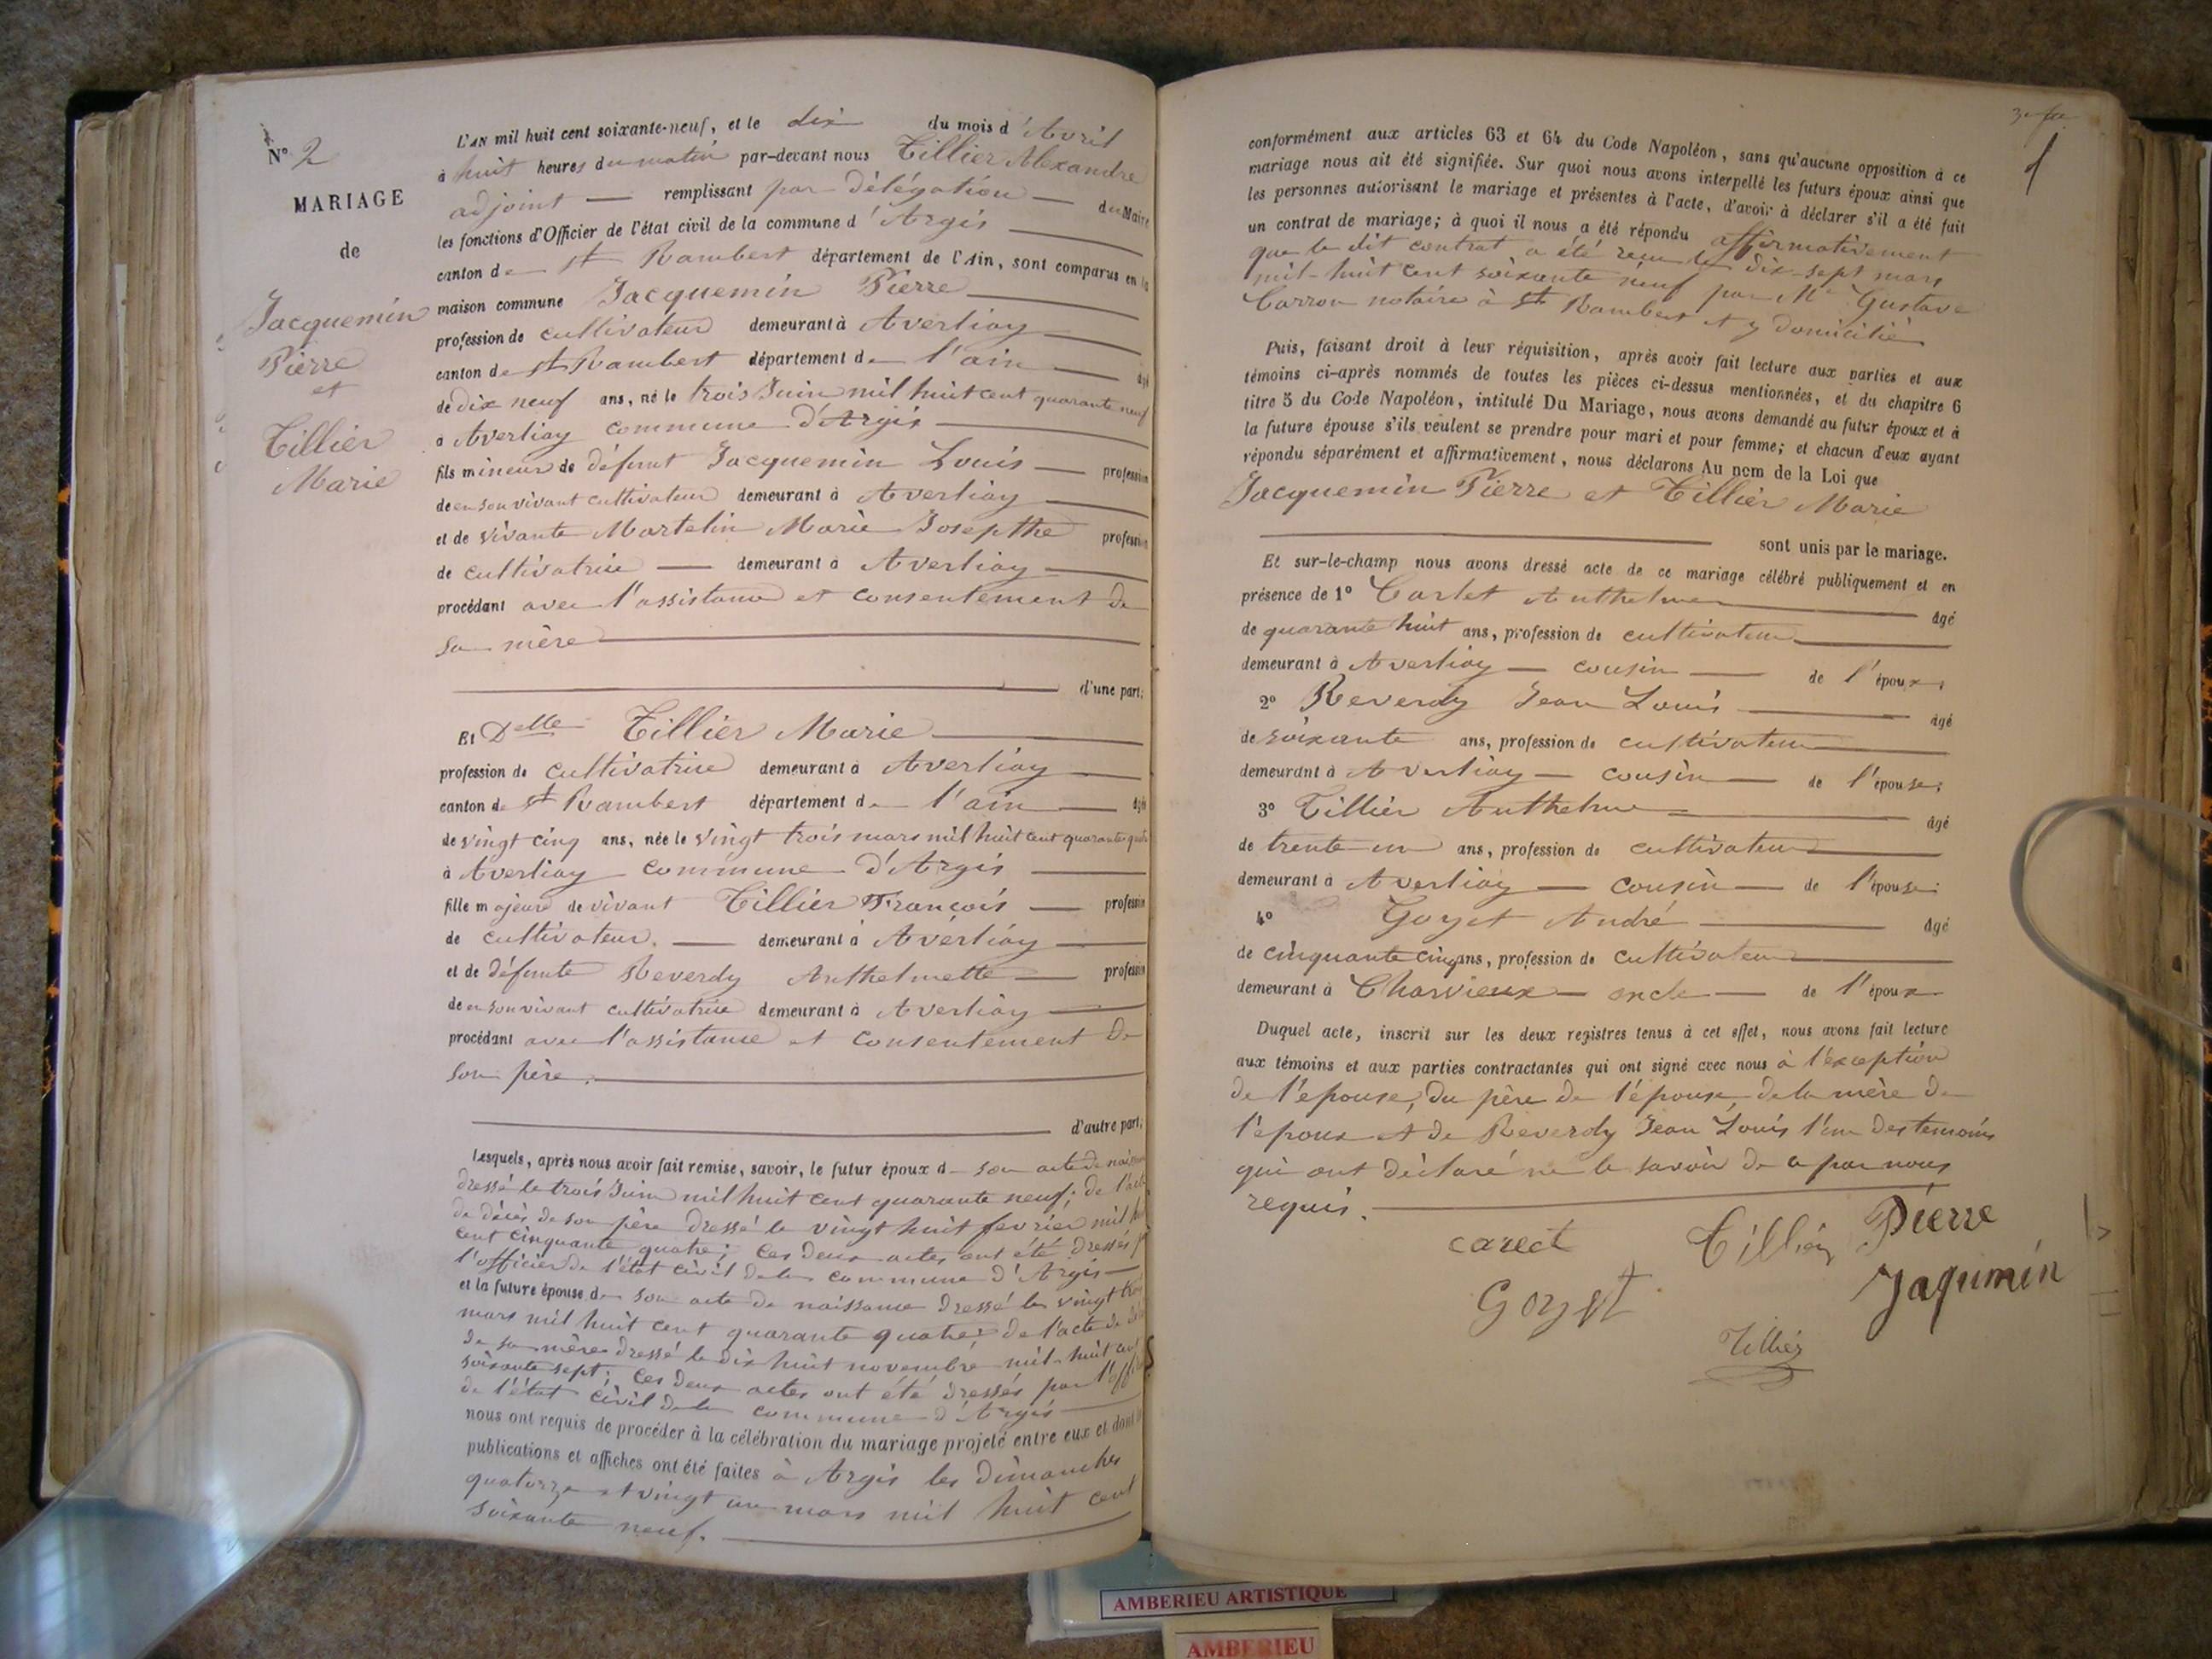 N° 2
MARIAGE
de
Jacquemin
Pierre
et
Tillier
Marie
L'AN mil huit cent soixante-neuf, et le dix du mois d'Avril
à huit heures du matin par-devant nous Tillier Alexandre
adjoint — remplissant par délégation — du Maire
les fonctions d'Officier de l'état civil de la commune d'Argis
canton de St Rambert département de l'Ain, sont comparus en la
maison commune Jacquemin Pierre
profession de cultivateur demeurant à Averliay
canton de St Rambert département de l'ain — âgé
de dix neuf ans, né le trois Juin mil huit cent quarante neuf
à Averliay commune d'Argis
fils mineur de défunt Jacquemin Louis — profession
de en son vivant cultivateur demeurant à Averliay
et de vivante Martelin Marie Josepthe profession
de cultivatrice — demeurant à Averliay
procédant avec l'assistance et consentement de
sa mère
d'une part;
Et Delle Tillier Marie
profession de cultivatrice demeurant à Averliay
canton de St Rambert département de l'ain — âgée
de vingt cinq ans, née le vingt trois mars mil huit cent quarante quatre
à Averliay commune d'Argis
fille majeure de vivant Tillier François — profession
de cultivateur. — demeurant à Averliay
et de défunte Reverdy Anthelmette — profession
de en son vivant cultivatrice demeurant à Averliay
procédant avec l'assistance et consentement de
son père.
d'autre part;
Lesquels, après nous avoir fait remise, savoir, le futur époux de son acte de naissance
dressé le trois Juin mil huit cent quarante neuf; de l'acte
de décès de son père dressé le vingt huit fevrier mil huit
cent cinquante quatre; ces deux actes ont été dressés par
l'officier de l'état civil de la commune d'Argis —
et la future épouse de son acte de naissance dressé le vingt trois
mars mil huit cent quarante quatre; de l'acte de décès
de sa mère dressé le dix huit novembre mil-huit cent
soixante sept; ces deux actes ont été dressés par l'officier
de l'état civil de la commune d'Argis
nous ont requis de procéder à la célébration du mariage projeté entre eux et dont les
publications et affiches ont été faites à Argis les dimanches
quatorze et vingt un mars mil huit cent
soixante neuf.
conformément aux articles 63 et 64 du Code Napoléon, sans qu'aucune opposition à ce
mariage nous ait été signifiée. Sur quoi nous avons interpellé les futurs époux ainsi que
les personnes autorisant le mariage et présentes à l'acte, d'avoir à déclarer s'il a été fait
un contrat de mariage; à quoi il nous a été répondu affirmativement
que le dit contrat a été reçu le dix-sept mars
mil-huit cent soixante neuf par Me Gustave
Carron notaire à St Rambert et y domicilié
Puis, faisant droit à leur réquisition, après avoir fait lecture aux parties et aux
témoins ci-après nommés de toutes les pièces ci-dessus mentionnées, et du chapitre 6
titre 5 du Code Napoléon, intitulé Du Mariage, nous avons demandé au futur époux et à
la future épouse s'ils veulent se prendre pour mari et pour femme; et chacun d'eux ayant
répondu séparément et affirmativement, nous déclarons Au nom de la Loi que
Jacquemin Pierre et Tillier Marie
sont unis par le mariage.
Et sur-le-champ nous avons dressé acte de ce mariage célébré publiquement et en
présence de 1° Carlet Anthelme âgé
de quarante huit ans, profession de cultivateur
demeurant à Averliay — cousin — de l'époux;
2° Reverdy Jean Louis âgé
de soixante ans, profession de cultivateur
demeurant à Averliay — cousin — de l'épouse;
3° Tillier Anthelme âgé
de trente un ans, profession de cultivateur
demeurant à Averliay — cousin — de l'épouse;
4° Goyet André âgé
de cinquante cinq ans, profession de cultivateur
demeurant à Charvieux — oncle — de l'époux
Duquel acte, inscrit sur les deux registres tenus à cet effet, nous avons fait lecture
aux témoins et aux parties contractantes qui ont signé avec nous à l'exception
de l'épouse, du père de l'épouse, de la mère de
l'époux et de Reverdy Jean Louis l'un des temoins
qui ont déclaré ne le savoir de a par nous
requis.
carect Tillier Pierre
Goyet Jaqumin
Tillier
AMBERIEU ARTISTIQUE
AMBERIEU